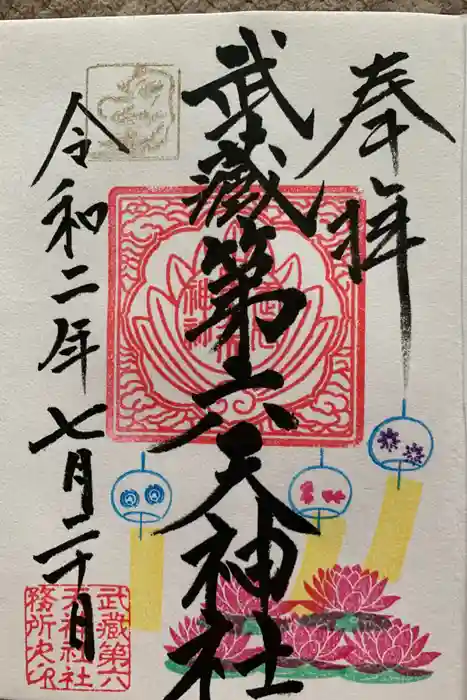 奉拝
武藏第六天神社
令和二年七月二十日
武蔵第六
天神社社
務所之印